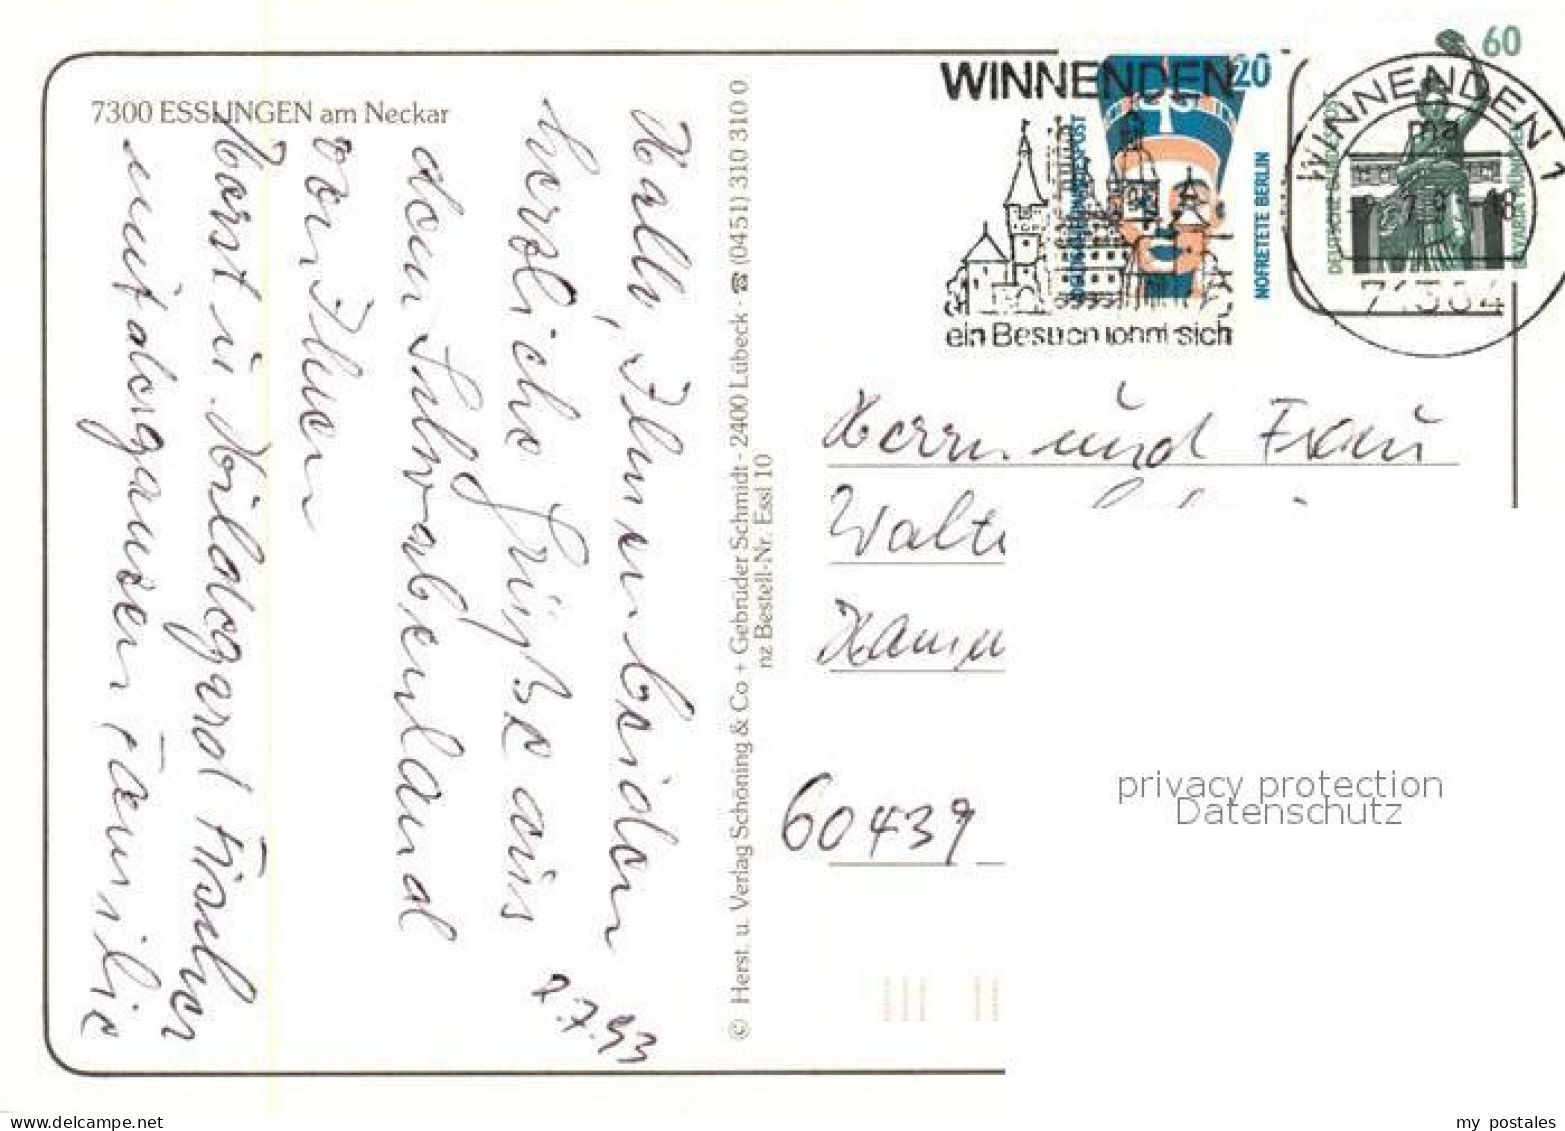 7300 ESSLINGEN am Neckar
Hallo, Ihr beiden
herzliche Grüße aus
dem Schwabenland
von Ihren
Horst u Hildegard Fischer
mit der ganzen Familie
2.7.93
© Herst. u. Verlag Schöning & Co + Gebrüder Schmidt · 2400 Lübeck · ☎ (0451) 310 310 0
nz Bestell-Nr. Essl 10
WINNENDEN
ein Besuch lohnt sich
20
DEUTSCHE BUNDESPOST
NOFRETETE BERLIN
60
DEUTSCHE BUNDESPOST
BAVARIA MÜNCHEN
WINNENDEN 1
ma
71364
Herrn und Frau
Walte
60439
privacy protection
Datenschutz
my postales